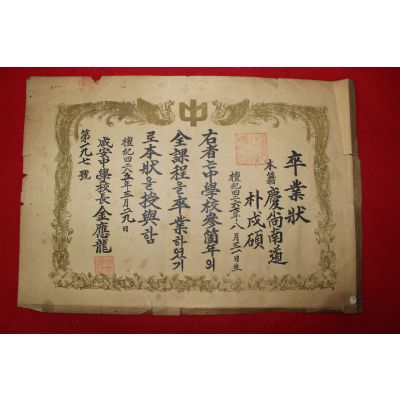 中
卒業狀
本籍 慶尙南道
朴成碩
八月三一日生
右者는中學校參箇年의
全課程을卒業하였기
로本狀을授與함
檀紀四二八五年三月二九日
咸安中學校長 金應龍
第一九七號